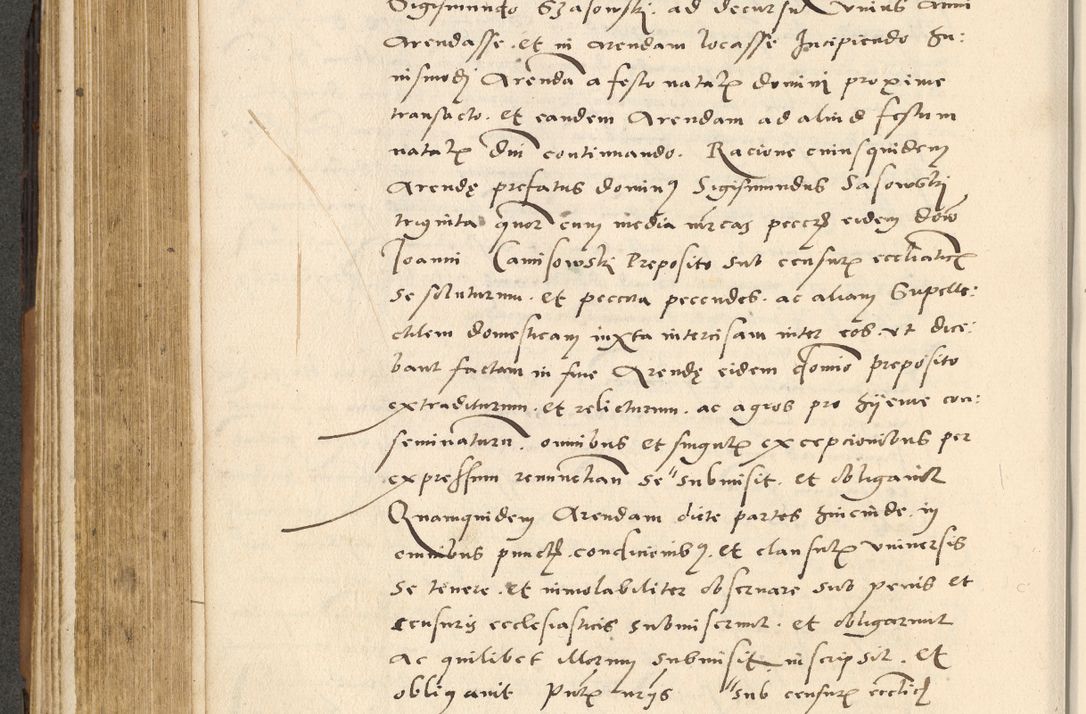 Sigismundo Szasowski. ad decursu unius anni
Arendasse. et in arendam locasse Incipiendo hu:
iusmodj Arenda a festo natalꝝ dominj proxime
transacto. et eandem Arendam ad aliud festum
natalꝝ dni continuando. Racione cuiusquidem
Arendę prefatus dominꝰ Sigismundus Sasowskj
triginta quor cum media mrcas peccꝝ eidem dno
Joanni Camisowskj Preposito sub censurꝝ eccliaticꝝ
se soluturum. et peccora pecendes. ac aliam Supelle:
ctilem domesticam iuxta intercisam inter eos. ut dice:
bant factam in fine Arendę eidem domino preposito
extraditurum. et relicturum. ac agros pro hyeme con:
seminaturu. omnibus et singulꝝ excepcionibus per
expressum renunctian se submisit. et obligavit
Quamquidem Arendam dicte partes hincinde. in
omnibus punctꝭ. condicionibꝰ. et clausulꝝ universis
se tenere. et inviolabiliter observare sub penis et
censuris ecclesiasticis submiserunt. et obligarunt
ac quilibet illorum submisit inscripsit. et
obligavit Putꝝ uriis sub censurꝝ ecclicꝭ